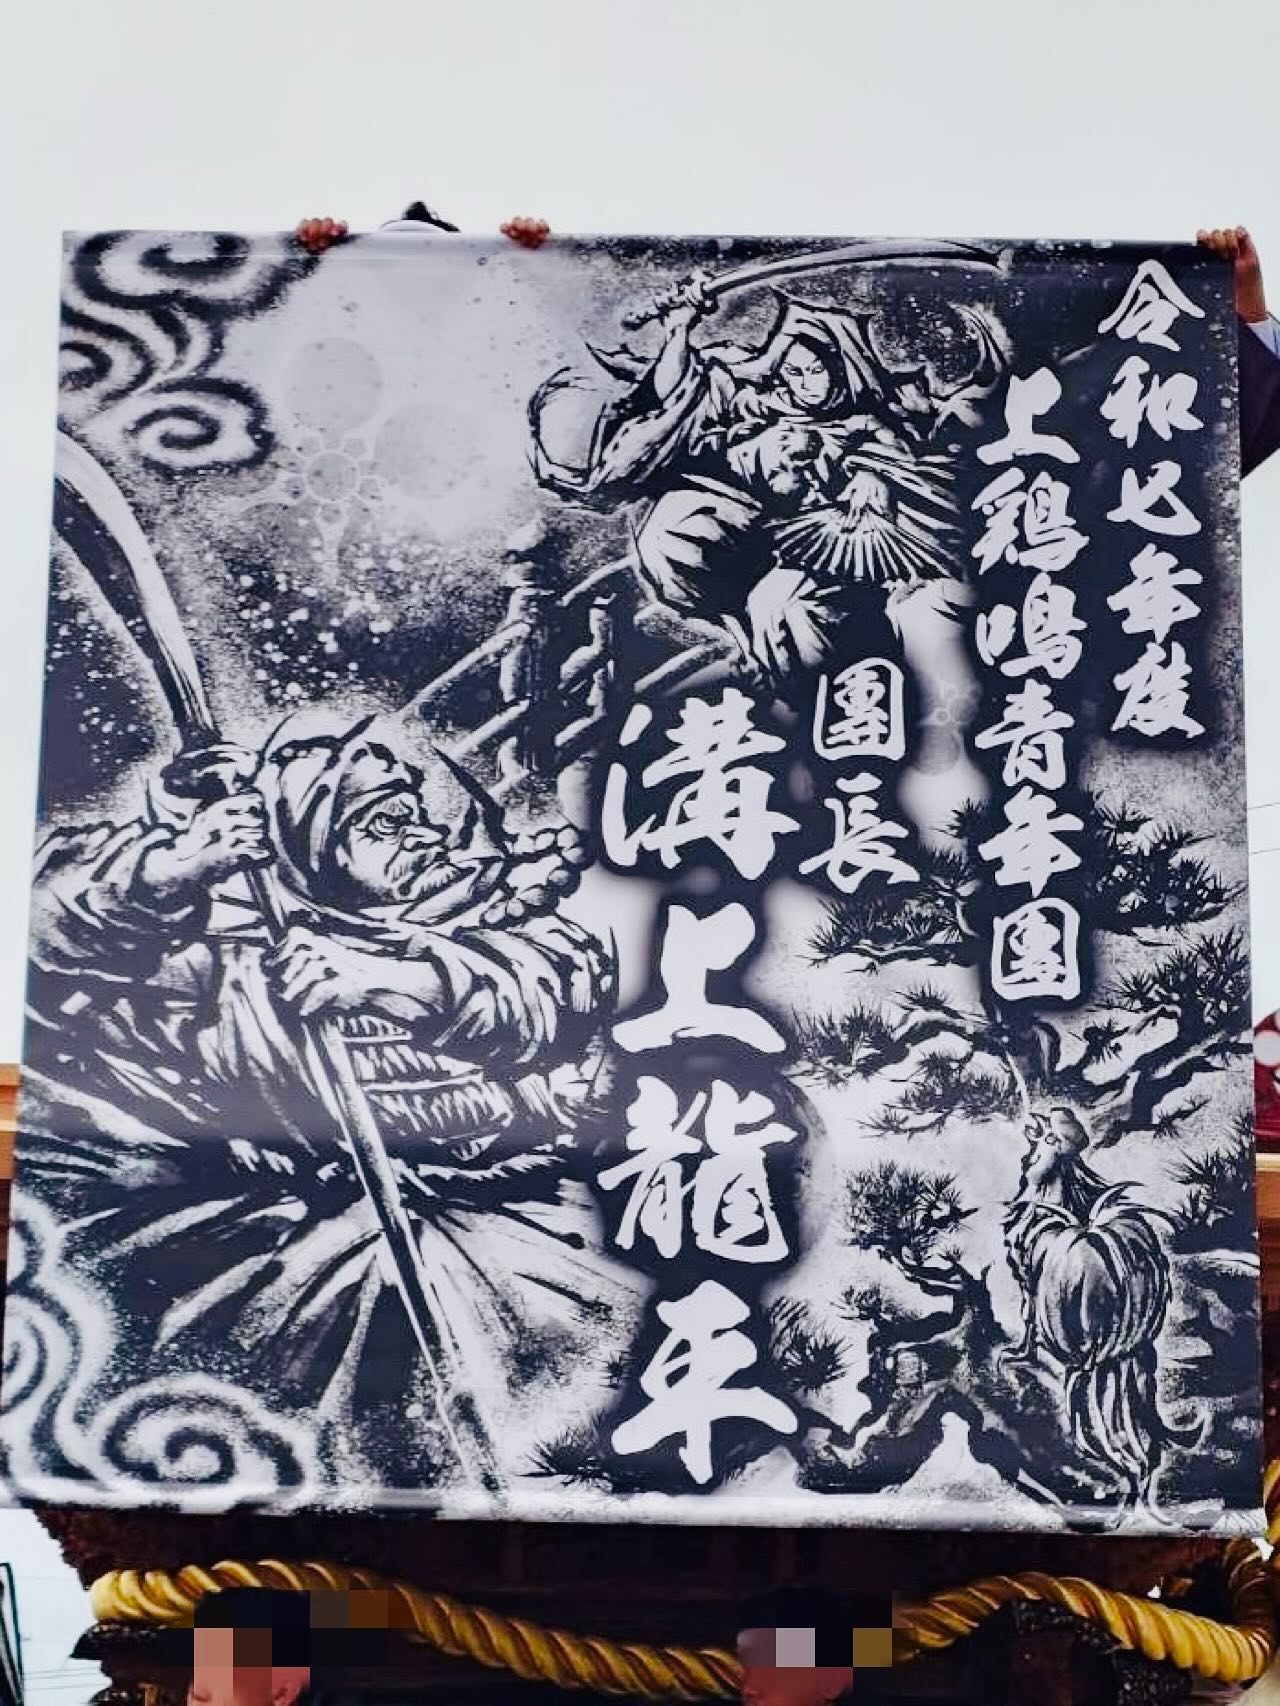 令和七年度
上鶏鳴青年團
團長
溝上龍平